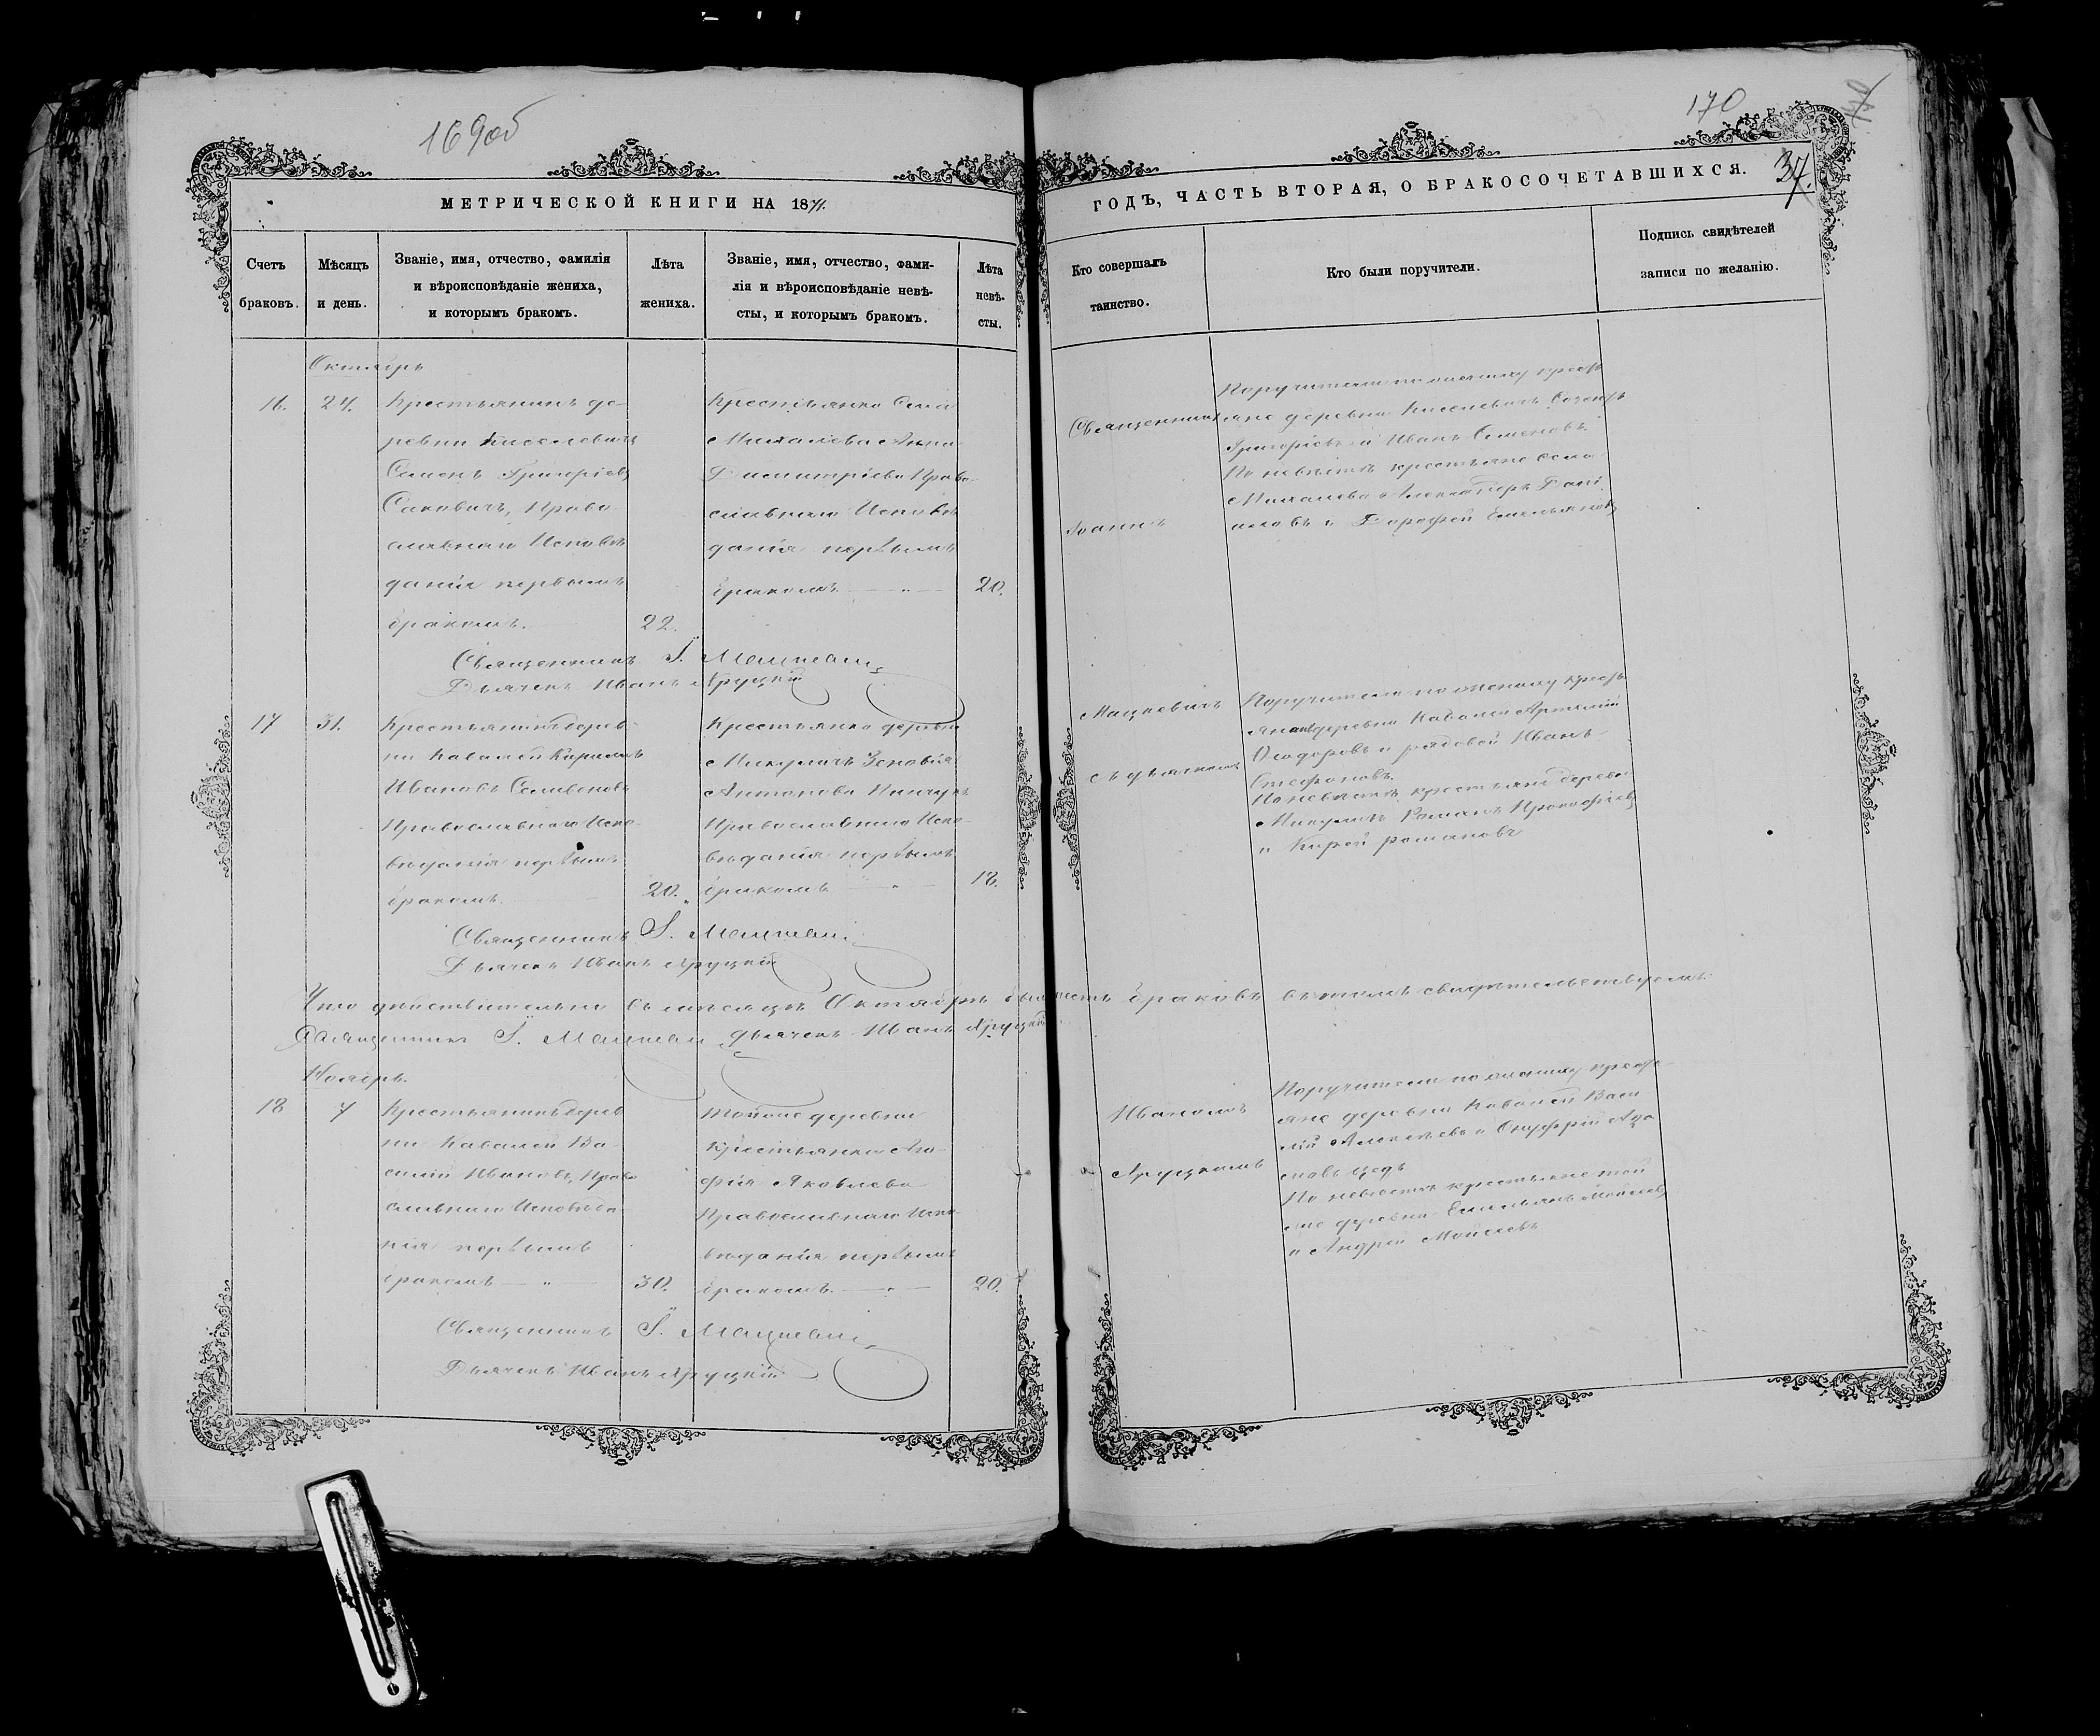 169 об
170
37.
МЕТРИЧЕСКОЙ КНИГИ НА 1871.
ГОДЪ, ЧАСТЬ ВТОРАЯ, О БРАКОСОЧЕТАВШИХСЯ.
Счетъ браковъ.
Мѣсяцъ и день.
Званіе, имя, отчество, фамилія
и вѣроисповѣданіе жениха,
и которымъ бракомъ.
Лѣта жениха.
Званіе, имя, отчество, фами-
лія и вѣроисповѣданіе невѣ-
сты, и которымъ бракомъ.
Лѣта невѣ-сты.
Кто совершалъ
таинство.
Кто были поручители.
Подпись свидѣтелей
записи по желанію.
Октябрь
16. 24. Крестьянинъ де-
ревни Киселевичъ
Семенъ Григоріевъ
Саковичъ, Право
славнаго Исповѣ
данія первымъ
бракомъ. 22.
Крестьянка Села
Михалева Анна
Димитріева Право
славнаго Исповѣ
данія первымъ
бракомъ 20.
Священникъ
Іоаннъ
Поручители по жениху кресть
яне деревни Киселевичъ
Григоріевъ и Иванъ Семеновъ.
По невѣстѣ крестьяне села
Михалева Александръ Дани
ловъ и Дорофей Емельяновъ
Священникъ І. Мацкевичъ
Дьячекъ Иванъ Хруцкій
17 31. Крестьянинъ дерев
ни Кавалей
Ивановъ
Православнаго Испо-
вѣданія первымъ
бракомъ 20.
Крестьянка деревни
Микуличъ Зеновія
Антонова
Православнаго Испо-
вѣданія первымъ
бракомъ 18.
Мацкевичъ
съ дьячкомъ
Поручители по жениху кресть
янинъ деревни Кавалей Артемій
Ѳеодоровъ и рядовой Иванъ
Стефановъ.
По невѣстѣ крестьяне деревни
Микуличъ Романъ Прокофіевъ
и Кирей Романовъ
Священникъ І. Мацкевичъ
Дьячекъ Иванъ Хруцкій
Что дѣйствительно въ мѣсяцѣ Октябрѣ было шесть браковъ въ томъ свидѣтельствуемъ
Священникъ І. Мацкевичъ Дьячекъ Иванъ Хруцкій
Ноябрь.
18 7 Крестьянинъ дерев
ни Кавалей Ва-
силій Ивановъ, Право
славнаго Исповѣда
нія первымъ
бракомъ 30.
Тойже деревни
крестьянка Аго-
фія Яковлева
Православнаго Испо-
вѣданія первымъ
бракомъ 20.
Иваномъ
Хруцкимъ
Поручители по жениху кресть-
яне деревни Кавалей Васи
лій Алексѣевъ и Онуфрій
По невѣстѣ крестьяне той
же деревни Емельянъ Моисеевъ
и Андрей Моисеевъ
Священникъ І. Мацкевичъ
Дьячекъ Иванъ Хруцкій